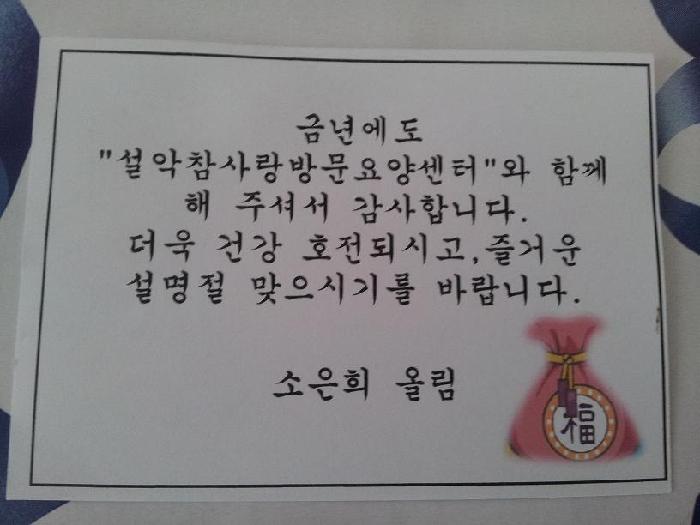 금년에도
"설악참사랑방문요양센터"와 함께
해 주셔서 감사합니다.
더욱 건강 호전되시고,즐거운
설명절 맞으시기를 바랍니다.
소은희 올림
福